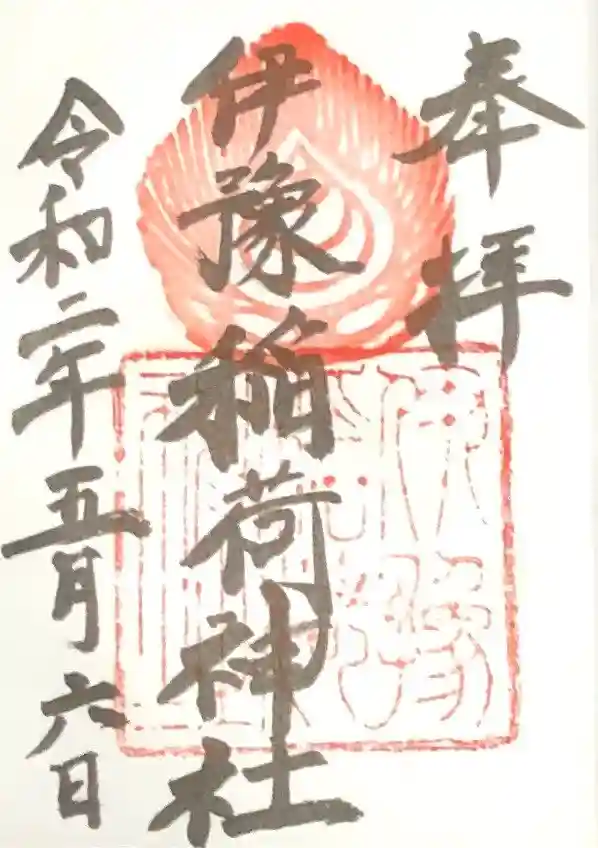 奉拝
伊豫稲荷神社
令和二年五月六日